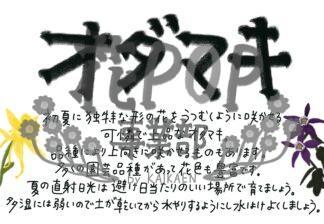 オダマキ
花POP
倶楽部
by KAIKAEN
初夏に独特な形の花をうつむくように咲かせる
可憐で上品なオダマキ
品種により上向きに咲かせるものもあります。
多くの園芸品種があって花色も豊富です。
夏の直射日光は避け日当たりのいい場所で育てましょう。
多湿には弱いので土が乾いてから水やりするようにし水はけよくしましょう。